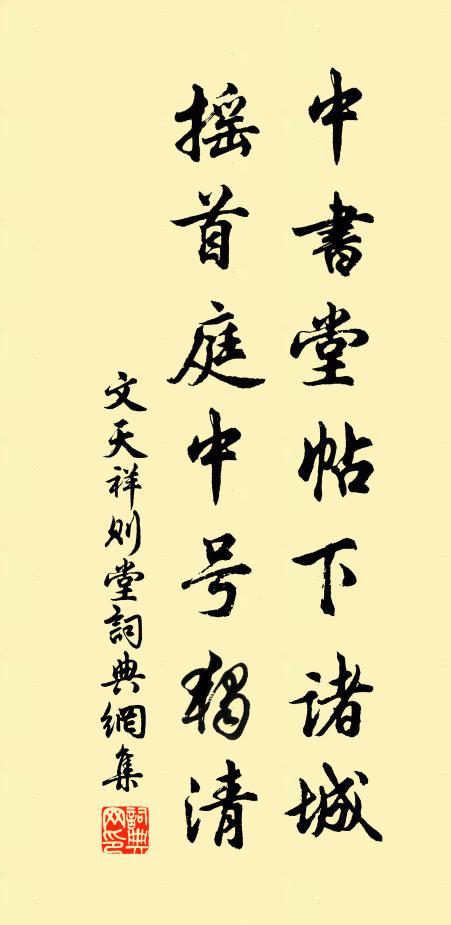 中書堂帖下諸城
摇首庭中号獨清
文天祥则堂詞典網集
詞典網印